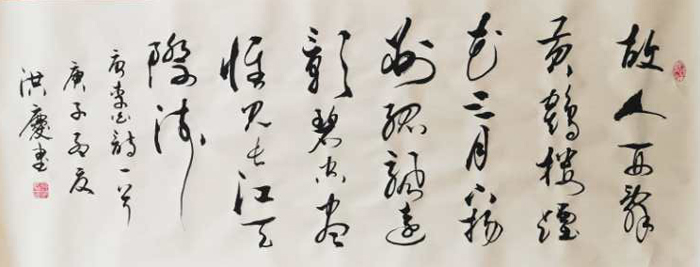 故人西辭
黄鶴樓煙
花三月下揚
州孤帆遠
影碧空盡
惟見長江天
際流
唐李白詩一首
庚子夏
洪慶書